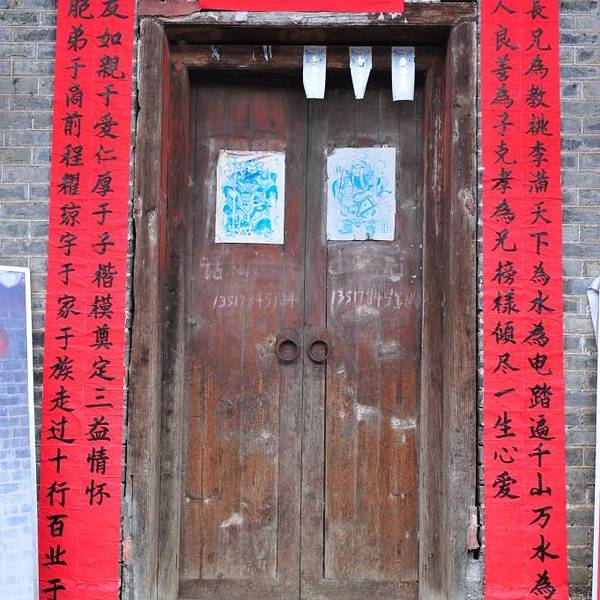 長兄為教桃李滿天下為水為电踏遍千山万水為
人良善為子克孝為兄榜樣傾尽一生心爱
友如親于爱仁厚于子楷模奠定三益情怀
胞弟于商前程耀琼宇于家于族走过十行百业于